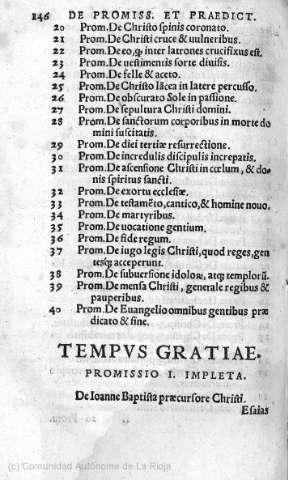 146 DE PROMISS. ET PRAEDICT.
20 Prom. De Christo spinis coronato.
21 Prom. De Christi cruce & vulneribus.
22 Prom. De eo, ꝙ inter latrones crucifixus est.
23 Prom. De vestimentis sorte divisis.
24 Prom. De felle & aceto.
25 Prom. De Christo lācea in latere percusso.
26 Prom. De obscurato Sole in passione.
27 Prom. De sepultura Christi domini.
28 Prom. De sanctorum corporibus in morte do
mini suscitatis.
29 Prom. De diei tertiæ resurrectione.
30 Prom. De incredulis discipulis increpatis.
31 Prom. De ascensione Christi in cœlum, & do-
nis spiritus sancti.
32 Prom. De exortu ecclesiæ.
33 Prom. De testamēto, cantico, & homine novo.
34 Prom. De martyribus.
35 Prom. De vocatione gentium.
36 Prom. De fide regum.
37 Prom. De iugo legis Christi, quod reges, gen
tesq; acceperunt.
38 Prom. De subversione idoloꝝ, atq; templorū.
39 Prom. De mensa Christi, generale regibus &
pauperibus.
40 Prom. De Evangelio omnibus gentibus præ
dicato & fine.
TEMPVS GRATIAE.
PROMISSIO I. IMPLETA.
De Ioanne Baptista præcursore Christi.
Esaias
(c) Comunidad Autónoma de La Rioja